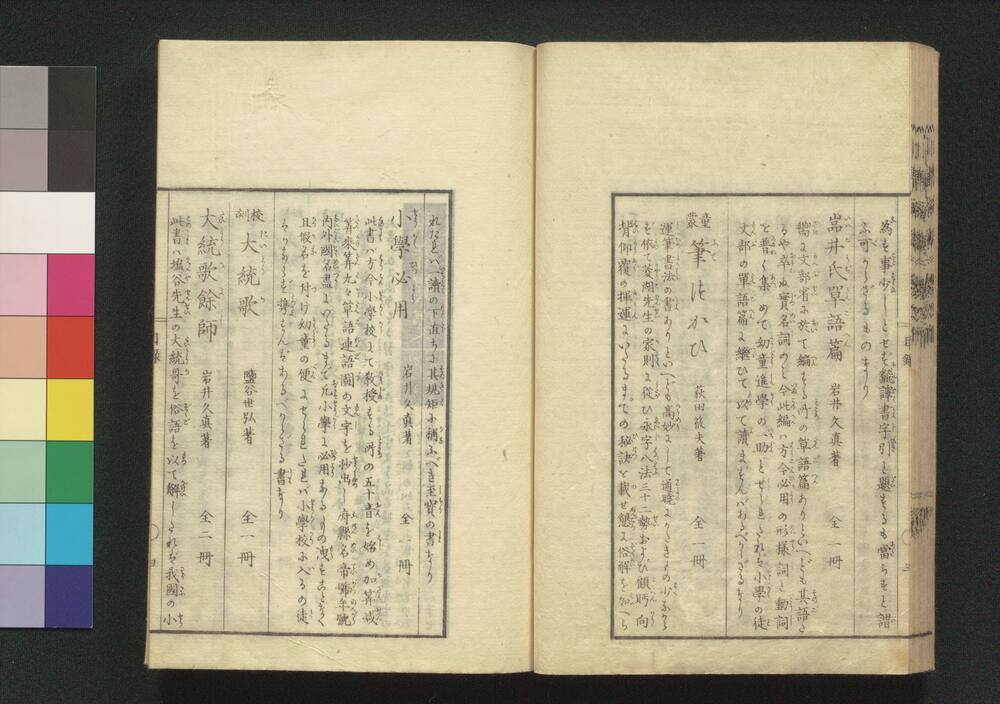 為も事少しとせず飜譯書字引と題するも當らずと謂
ふ可からざるものなり
岩井氏單語篇 岩井久真著 全一冊
嚮に文部省に於て編する所の單語篇ありといへども其語さ
るや幸ね實名詞のミ今此編ハ方今必用の形様詞と動詞
と普く集めて幼童進學の一助とせしもたれバ小學の徒
文部の單語篇に繼ひて以て讀まずんバあるべからざるなり
童蒙 筆つかひ 荻田筱夫著 全一冊
運筆書法の書ありといへども高妙にして通暁しかたきもの少なから
も依て菱湖先生の家則に從ひ永字八法三十二勢および傾眄向
背仰覆の揮運にいたるまての秘訣を載せ懇に俗解を加へら
れたれバ一讀の下直ちに其規矩に補ふべき至寶の書なり
小學必用 岩井久真著 全一冊
此書ハ方今小學校にて教授する所の五十音を始め加算或
算乘算九々單語連語圖の文字を抄出し府縣名帝號年號
内外國名盡にいたるまで凡小學に必用あるもの洩すことなく
且假名を付け幼童の便にせられたれバ小學校に入るの徒
もつとも携ずんバあるべからざる書なり
校訓 大統歌 鹽谷世弘著 全一冊
大統歌餘師 岩井久真著 全二冊
此書ハ塩谷先生の大統哥を俗語を以て解したれバ我國の小
目錄
目錄